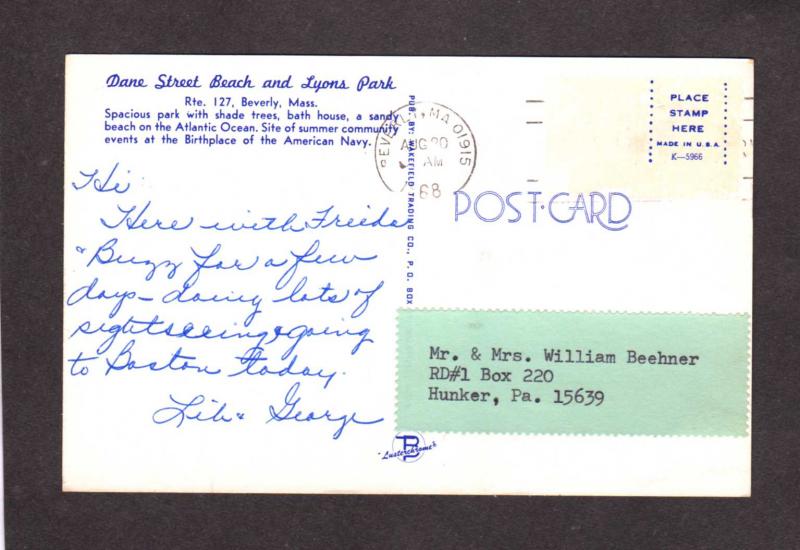 Dane Street Beach and Lyons Park
Rte. 127, Beverly, Mass.
Spacious park with shade trees, bath house, a sandy
beach on the Atlantic Ocean. Site of summer community
events at the Birthplace of the American Navy.
Hi
Here with Freida
& Buzz for a few
days – doing lots of
sightseeing & going
to Boston today.
Lib & George
PUB. BY: WAKEFIELD TRADING CO., P.O. BOX
BEVERLY, MA 01915
AUG 20
AM
68
PLACE
STAMP
HERE
MADE IN U.S.A.
K—5966
POST CARD
Mr. & Mrs. William Beehner
RD#1 Box 220
Hunker, Pa. 15639
"Lusterchrome"